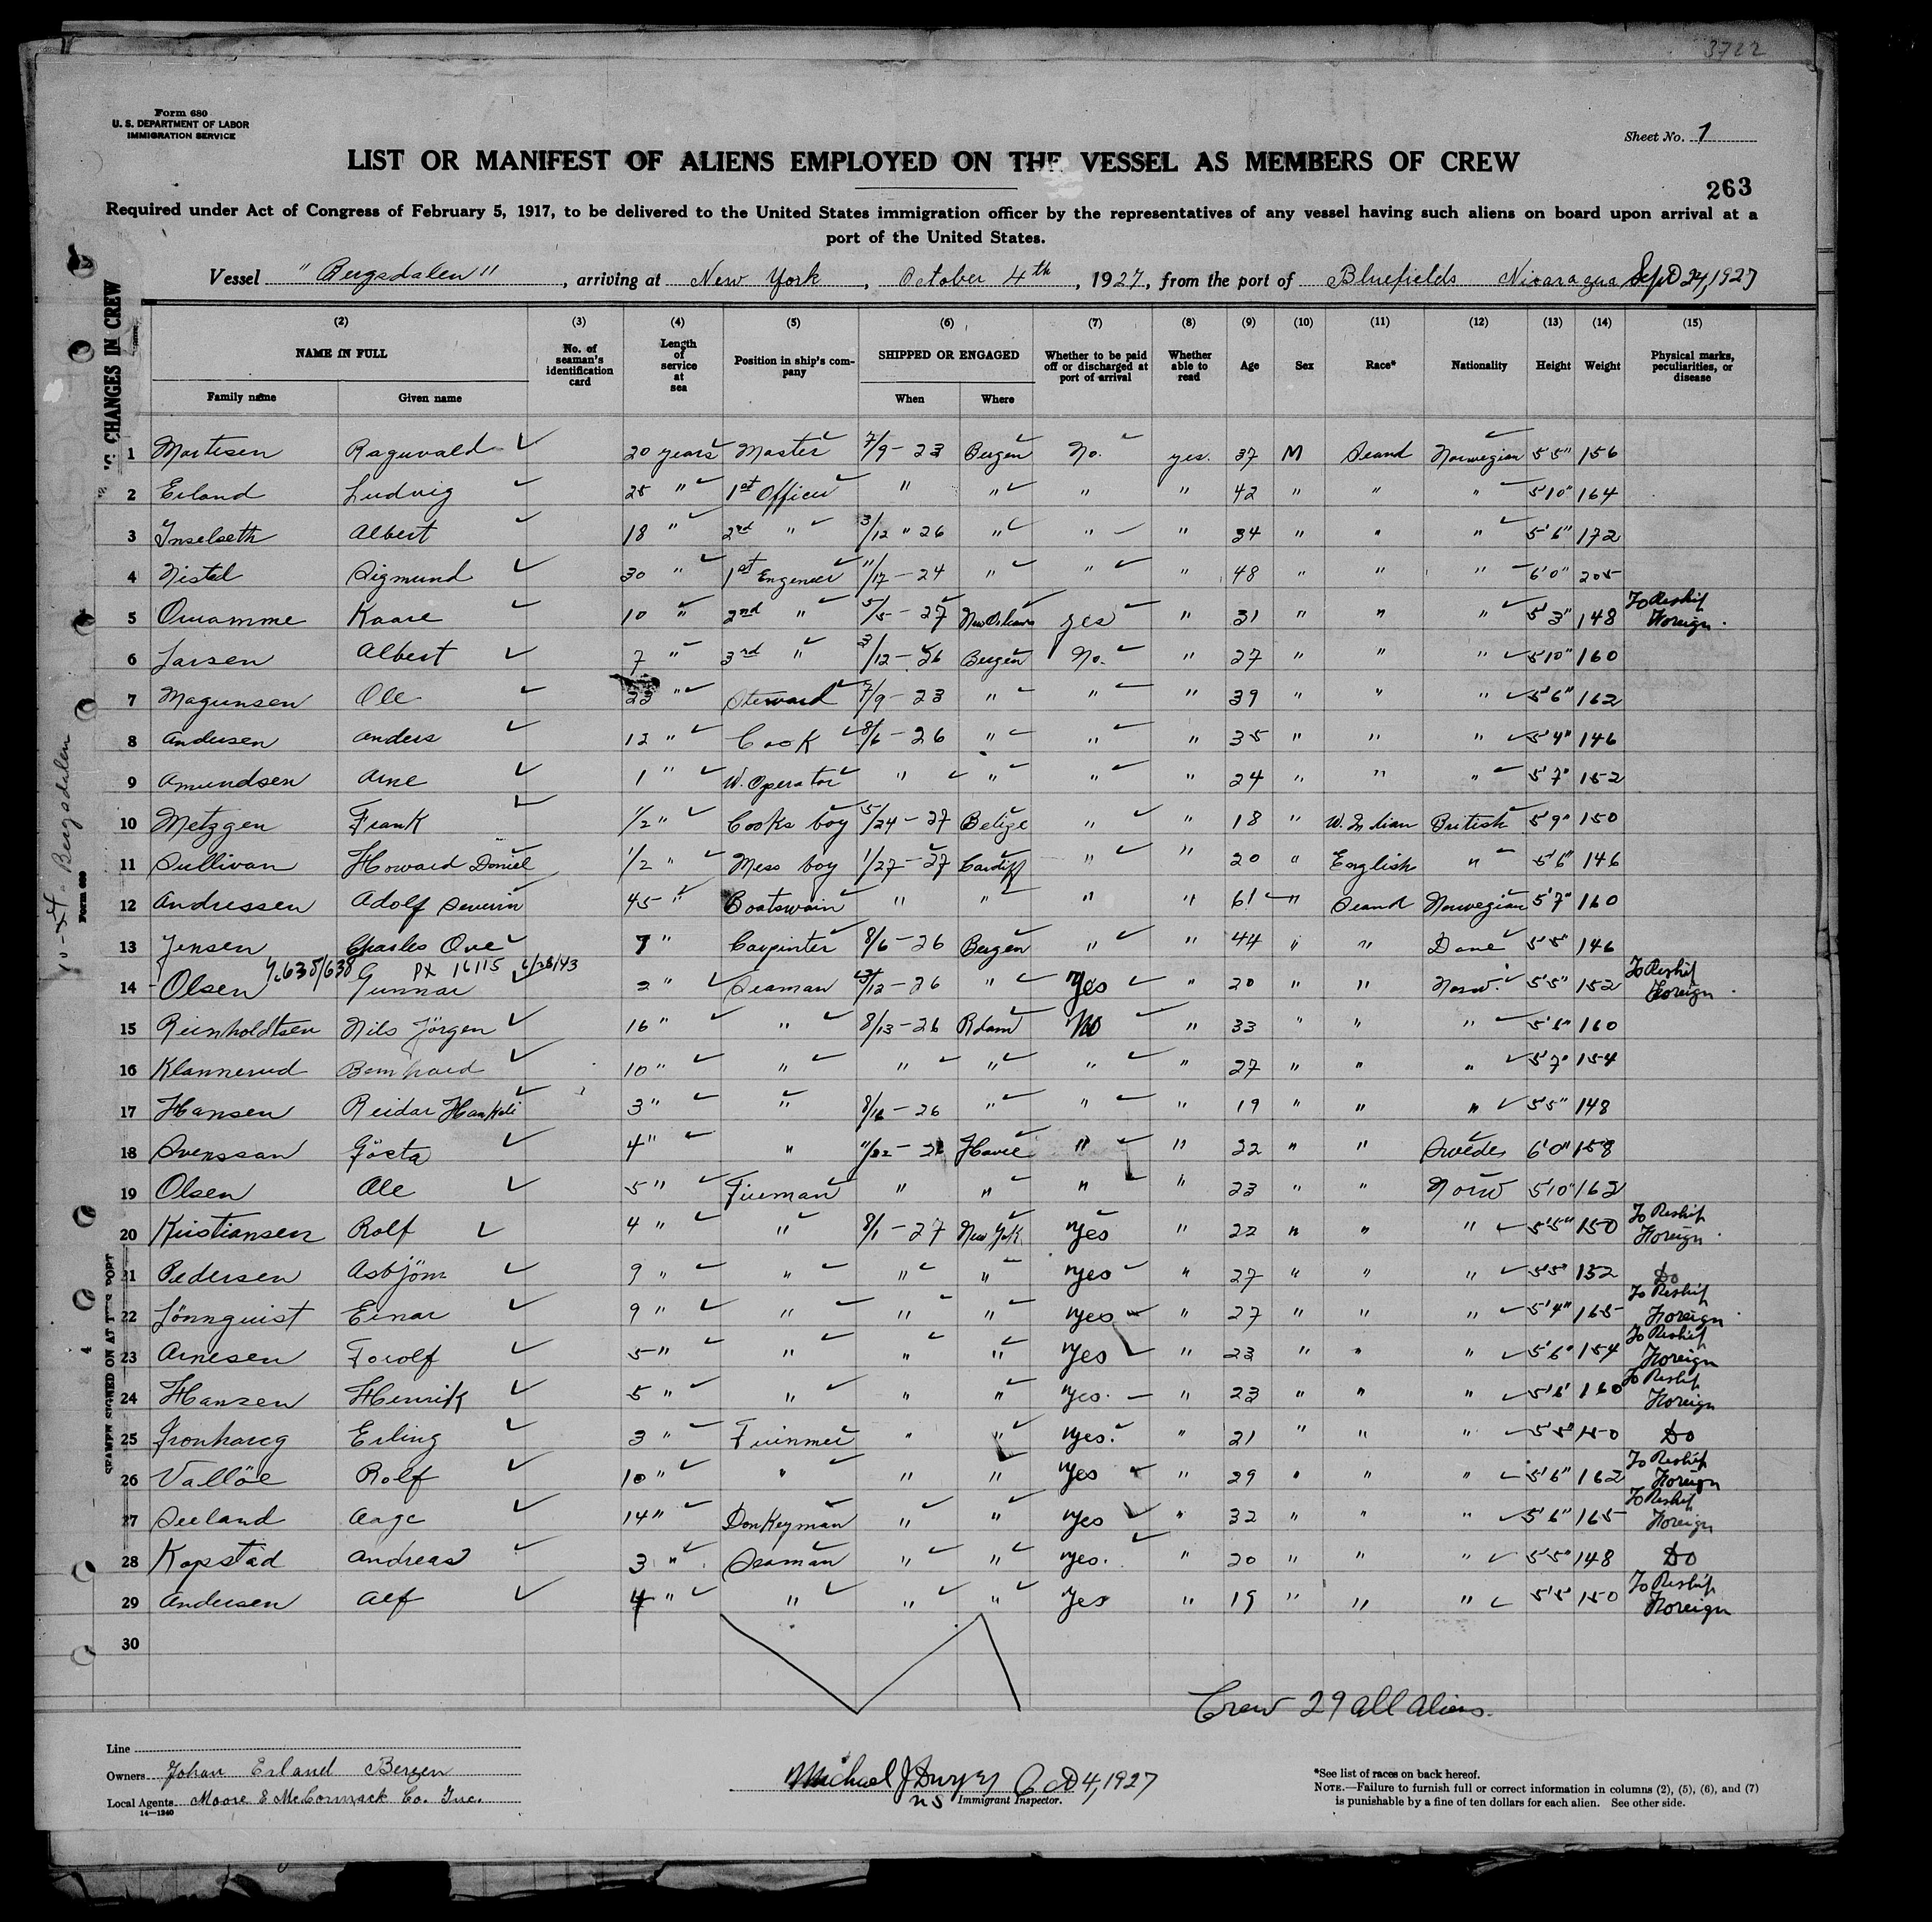 3722
Form 680
U. S. DEPARTMENT OF LABOR
IMMIGRATION SERVICE
Sheet No. 1
LIST OR MANIFEST OF ALIENS EMPLOYED ON THE VESSEL AS MEMBERS OF CREW
263
Required under Act of Congress of February 5, 1917, to be delivered to the United States immigration officer by the representatives of any vessel having such aliens on board upon arrival at a
port of the United States.
Vessel "Bergsdalen", arriving at New York, October 4th, 1927, from the port of Bluefields Nicaragua Sept 24, 1927
(2) (3) (4) (5) (6) (7) (8) (9) (10) (11) (12) (13) (14) (15)
NAME IN FULL Family name Given name No. of seaman's identification card Length of service at sea Position in ship's company SHIPPED OR ENGAGED When Where Whether to be paid off or discharged at port of arrival Whether able to read Age Sex Race* Nationality Height Weight Physical marks, peculiarities, or disease
1 Mortesen Raguvald 20 years Master 7/9-23 Bergen No. yes. 37 M Scand Norwegian 5'5" 156
2 Erland Ludvig 25 " 1st Officer " " " " 42 " " " 5'10" 164
3 Inselseth Albert 18 " 2nd " 3/12 " 26 " " " 34 " " " 5'6" 172
4 Nistad Sigmund 30 " 1st Engeneer 11/17-24 " " " 48 " " " 6'0" 205
5 Kaare 10 " 2nd " 5/5-27 New Orleans yes " 31 " " " 5'3" 148 To Reship Foreign.
6 Larsen Albert 7 " 3rd " 3/12-26 Bergen No. " 27 " " " 5'10" 160
7 Magunsen Ole 23 " Steward 7/9-23 " " 39 " " " 5'6" 162
8 Andersen Anders 12 " Cook 8/6-26 " " " 35 " " " 5'4" 146
9 Amundsen Arne 1 " W. Operator " " " " 24 " " " 5'7" 152
10 Metzgen Frank 1/2 " Cooks boy 5/24-27 Belize " " 18 " W. Indian British 5'9" 150
11 Sullivan Howard Daniel 1/2 " Mess boy 1/27-27 Cardiff " " 20 " English " 5'6" 146
12 Andressen Adolf Severin 45 " Boatswain " " " " 61 " Scand Norwegian 5'7" 160
13 Jensen Charles Ove 7 " Carpinter 8/6-26 Bergen " " 44 " " Dane 5'5" 146
PX 16115 6/28/43
14 Olsen Gunnar 2 " Seaman 3/12-26 " Yes " 20 " " Norw. 5'5" 152 To Reship Foreign.
15 Reinholdtsen Nils Jörgen 16 " " 8/13-26 Rdam No " 33 " " " 5'6" 160
16 Klannerud Bernhard 10 " " " " " " 27 " " " 5'7" 154
17 Hansen Reidar 3 " " 8/16-26 " " " 19 " " " 5'5" 148
18 Svenssan Gösta 4 " " Havre " " 22 " " Swedes 6'0" 158
19 Olsen Ole 5 " Fireman " " " " 23 " " Norw 5'10" 162
20 Kristiansen Rolf 4 " " 8/1-27 New York Yes " 22 " " " 5'5" 150 To Reship Foreign.
21 Pedersen Asbjörn 9 " " " " Yes " 27 " " " 5'5" 152 Do
22 Lönnquist Einar 9 " " " " Yes " 27 " " " 5'4" 165 To Reship Foreign.
23 Arnesen Torolf 5 " " " " Yes " 23 " " " 5'6" 154 To Reship Foreign
24 Hansen Henrik 5 " " " " Yes. " 23 " " " 5'6" 160 To Reship Foreign
25 Erling 3 " " " Yes. " 21 " " " 5'5" 150 Do
26 Vallöe Rolf 10 " " " " Yes " 29 " " " 5'6" 162 To Reship Foreign
27 Seeland Aage 14 " Donkeyman " " Yes " 32 " " " 5'6" 165 To Reship Foreign
28 Kopstad Andreas 3 " Seaman " " Yes. " 20 " " " 5'5" 148 Do
29 Andersen Alf 4 " " " " Yes " 19 " " " 5'5" 150 To Reship Foreign
30
Crew 29 all aliens.
Line
Owners Johan Erland Bergen
Local Agents Moore & McCormack Co. Inc.
14—1240
Michael J Dwyer Oct 4, 1927
Immigrant Inspector.
*See list of races on back hereof.
NOTE.—Failure to furnish full or correct information in columns (2), (5), (6), and (7)
is punishable by a fine of ten dollars for each alien. See other side.
CHANGES IN CREW
10-4 Bergsdalen
Form 680
SEAMEN SIGNED ON AT THIS PORT